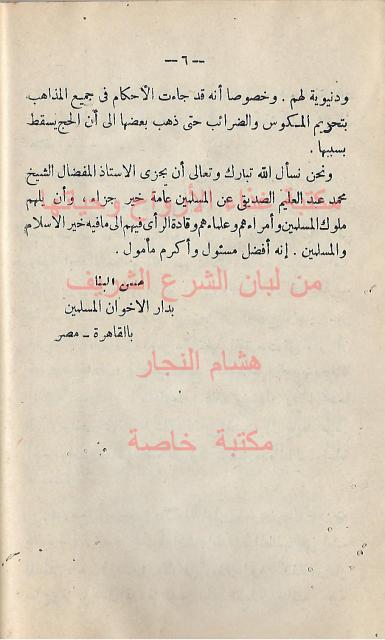 — ٦ —
ودنيوية لهم . وخصوصا أنه قد جاءت الأحكام فى جميع المذاهب
بتحريم المكوس والضرائب حتى ذهب بعضها الى أن الحج يسقط
بسببها .
ونحن نسأل الله تبارك وتعالى أن يجزى الاستاذ المفضال الشيخ
محمد عبد العليم الصديقى عن المسلمين عامة خير جزاء ، وأن يلهم
مكتبة غذاء الأرواح
ملوك المسلمين وأمراءهم وعلماءهم وقادة الرأى فيهم الى ما فيه خير الاسلام
والمسلمين . إنه أفضل مسئول وأكرم مأمول .
من لبان الشرع الشريف
حسن البنا
بدار الاخوان المسلمين
بالقاهرة – مصر
هشام النجار
مكتبة خاصة